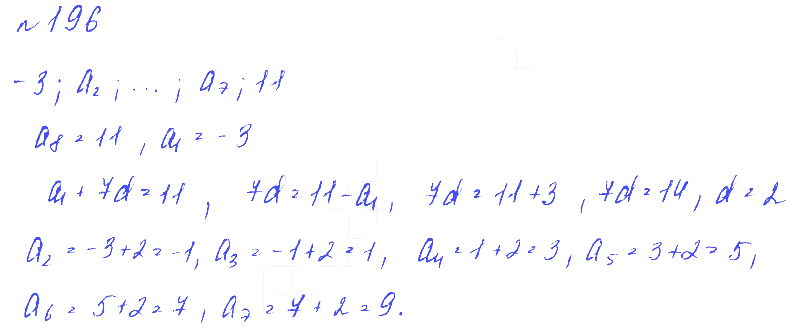 №196
-3; a₂; ...; a₇; 11
a₈ = 11, a₁ = -3
a₁ + 7d = 11, 7d = 11 - a₁, 7d = 11 + 3, 7d = 14, d = 2
a₂ = -3+2 = -1, a₃ = -1+2 = 1, a₄ = 1+2 = 3, a₅ = 3+2 = 5,
a₆ = 5+2 = 7, a₇ = 7+2 = 9.